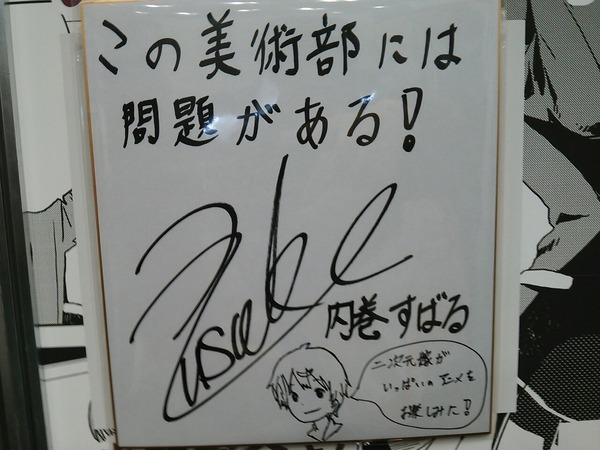 この美術部には
問題がある!
内巻すばる
二次元嫁が
いっぱいの アニメを
お楽しみに!